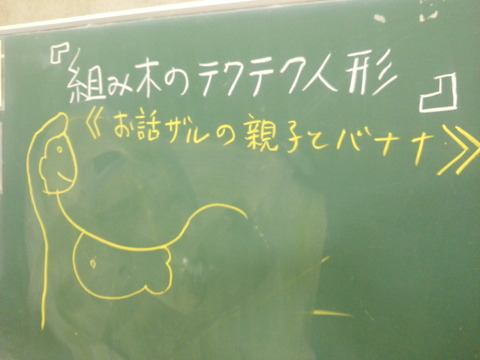 『組み木のテクテク人形』
《お話ザルの親子とバナナ》